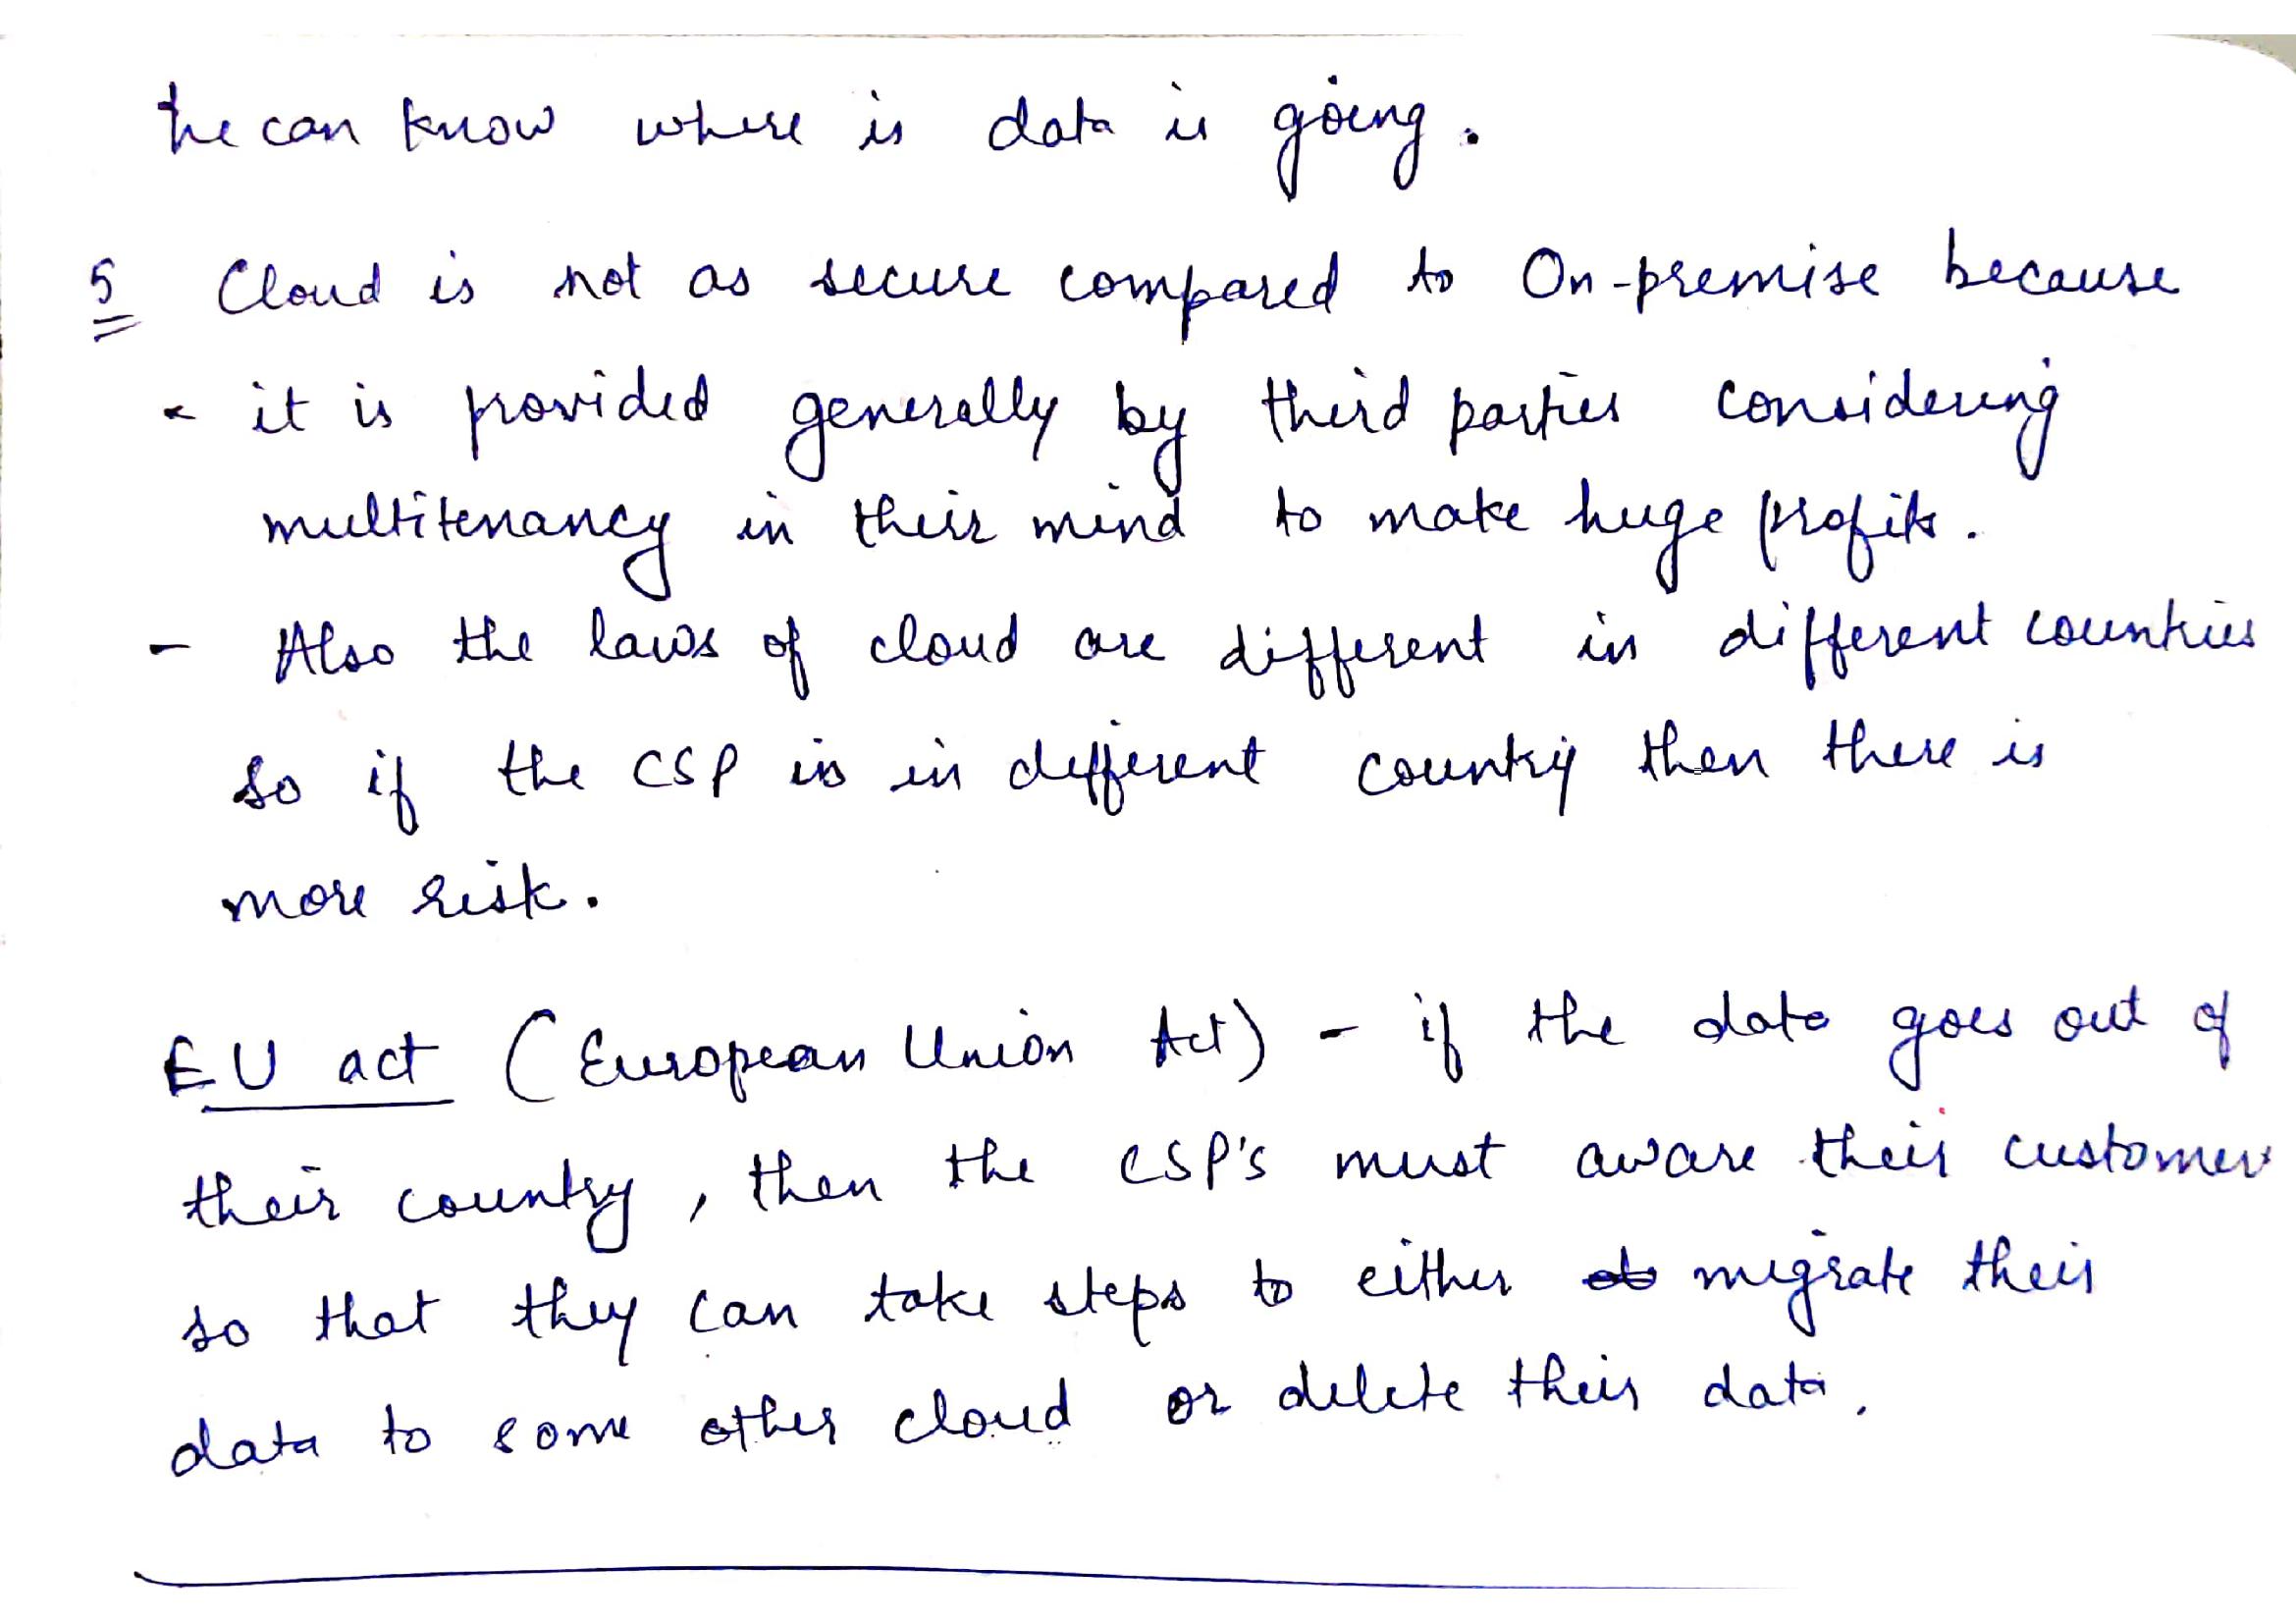 he can know where is data is going.
5 Cloud is not as secure compared to On-premise because
- it is provided generally by third parties considering
multitenancy in their mind to make huge profits.
- Also the laws of cloud are different in different countries
so if the CSP is in different country then there is
more risk.
EU act (European Union Act) - if the data goes out of
their country, then the CSP's must aware their customers
so that they can take steps to either migrate their
data to some other cloud or delete their data.